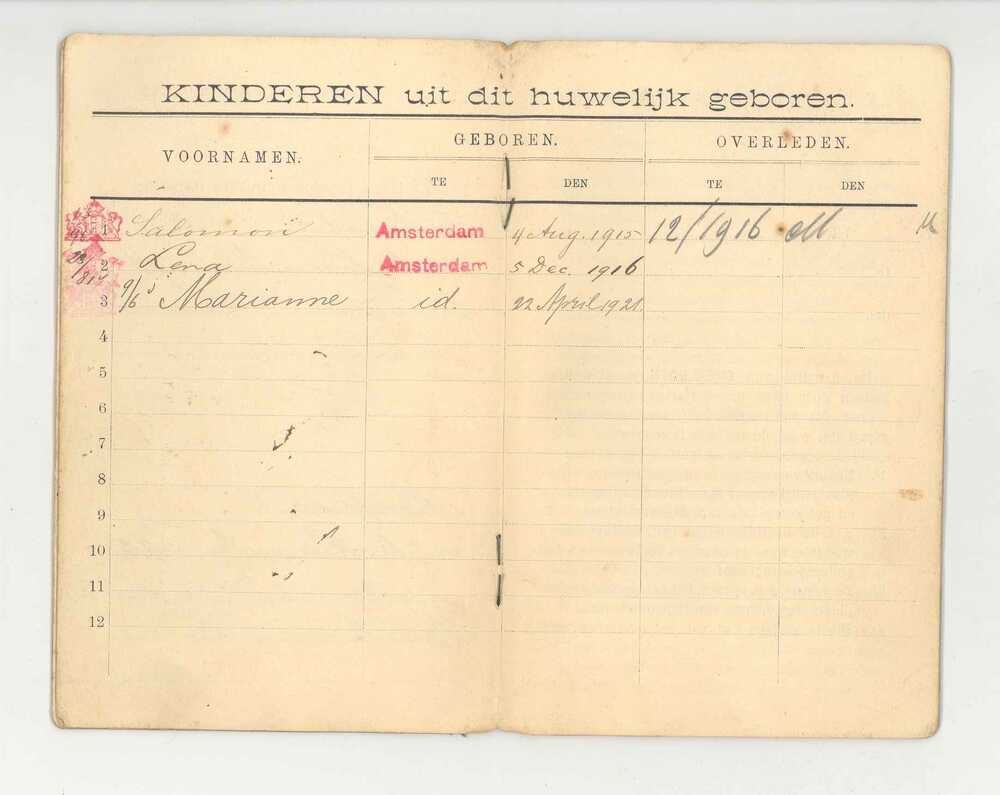 KINDEREN uit dit huwelijk geboren.
VOORNAMEN. GEBOREN. OVERLEDEN.
TE DEN TE DEN
1 Salomon Amsterdam 4 Aug. 1915 12/1916
2 Lena Amsterdam 5 Dec. 1916
3 Marianne id. 22 April 1921
4
5
6
7
8
9
10
11
12